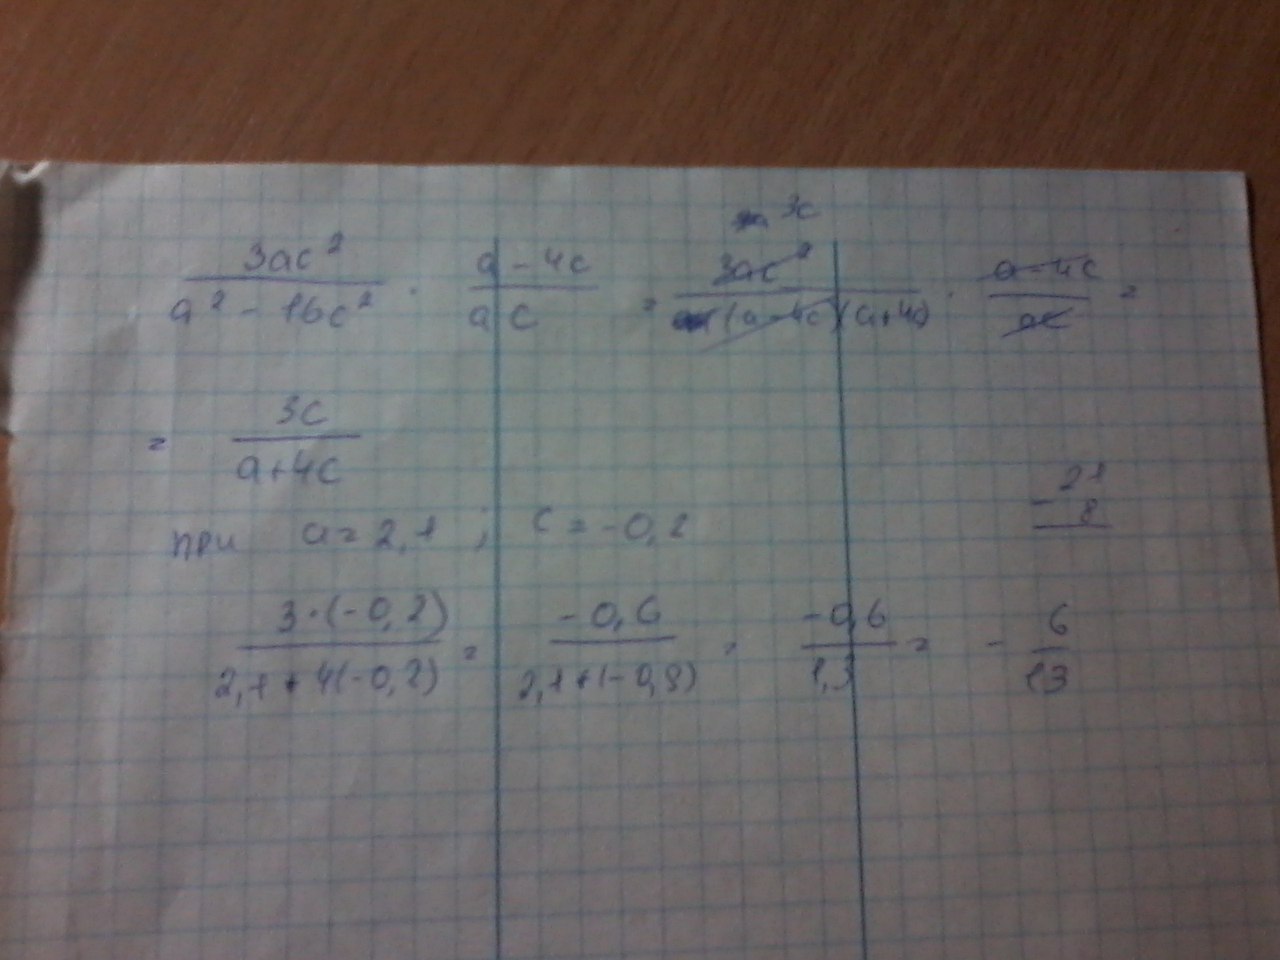 3ac² / (a² - 16c²) · (a - 4c) / (ac) = 3ac² / ((a - 4c)(a + 4c)) · (a - 4c) / (ac) =
3c
= 3c / (a + 4c)
21
- 8
при a = 2,1 ; c = -0,2
3·(-0,2) / (2,1 + 4(-0,2)) = -0,6 / (2,1 + (-0,8)) = -0,6 / 1,3 = - 6 / 13